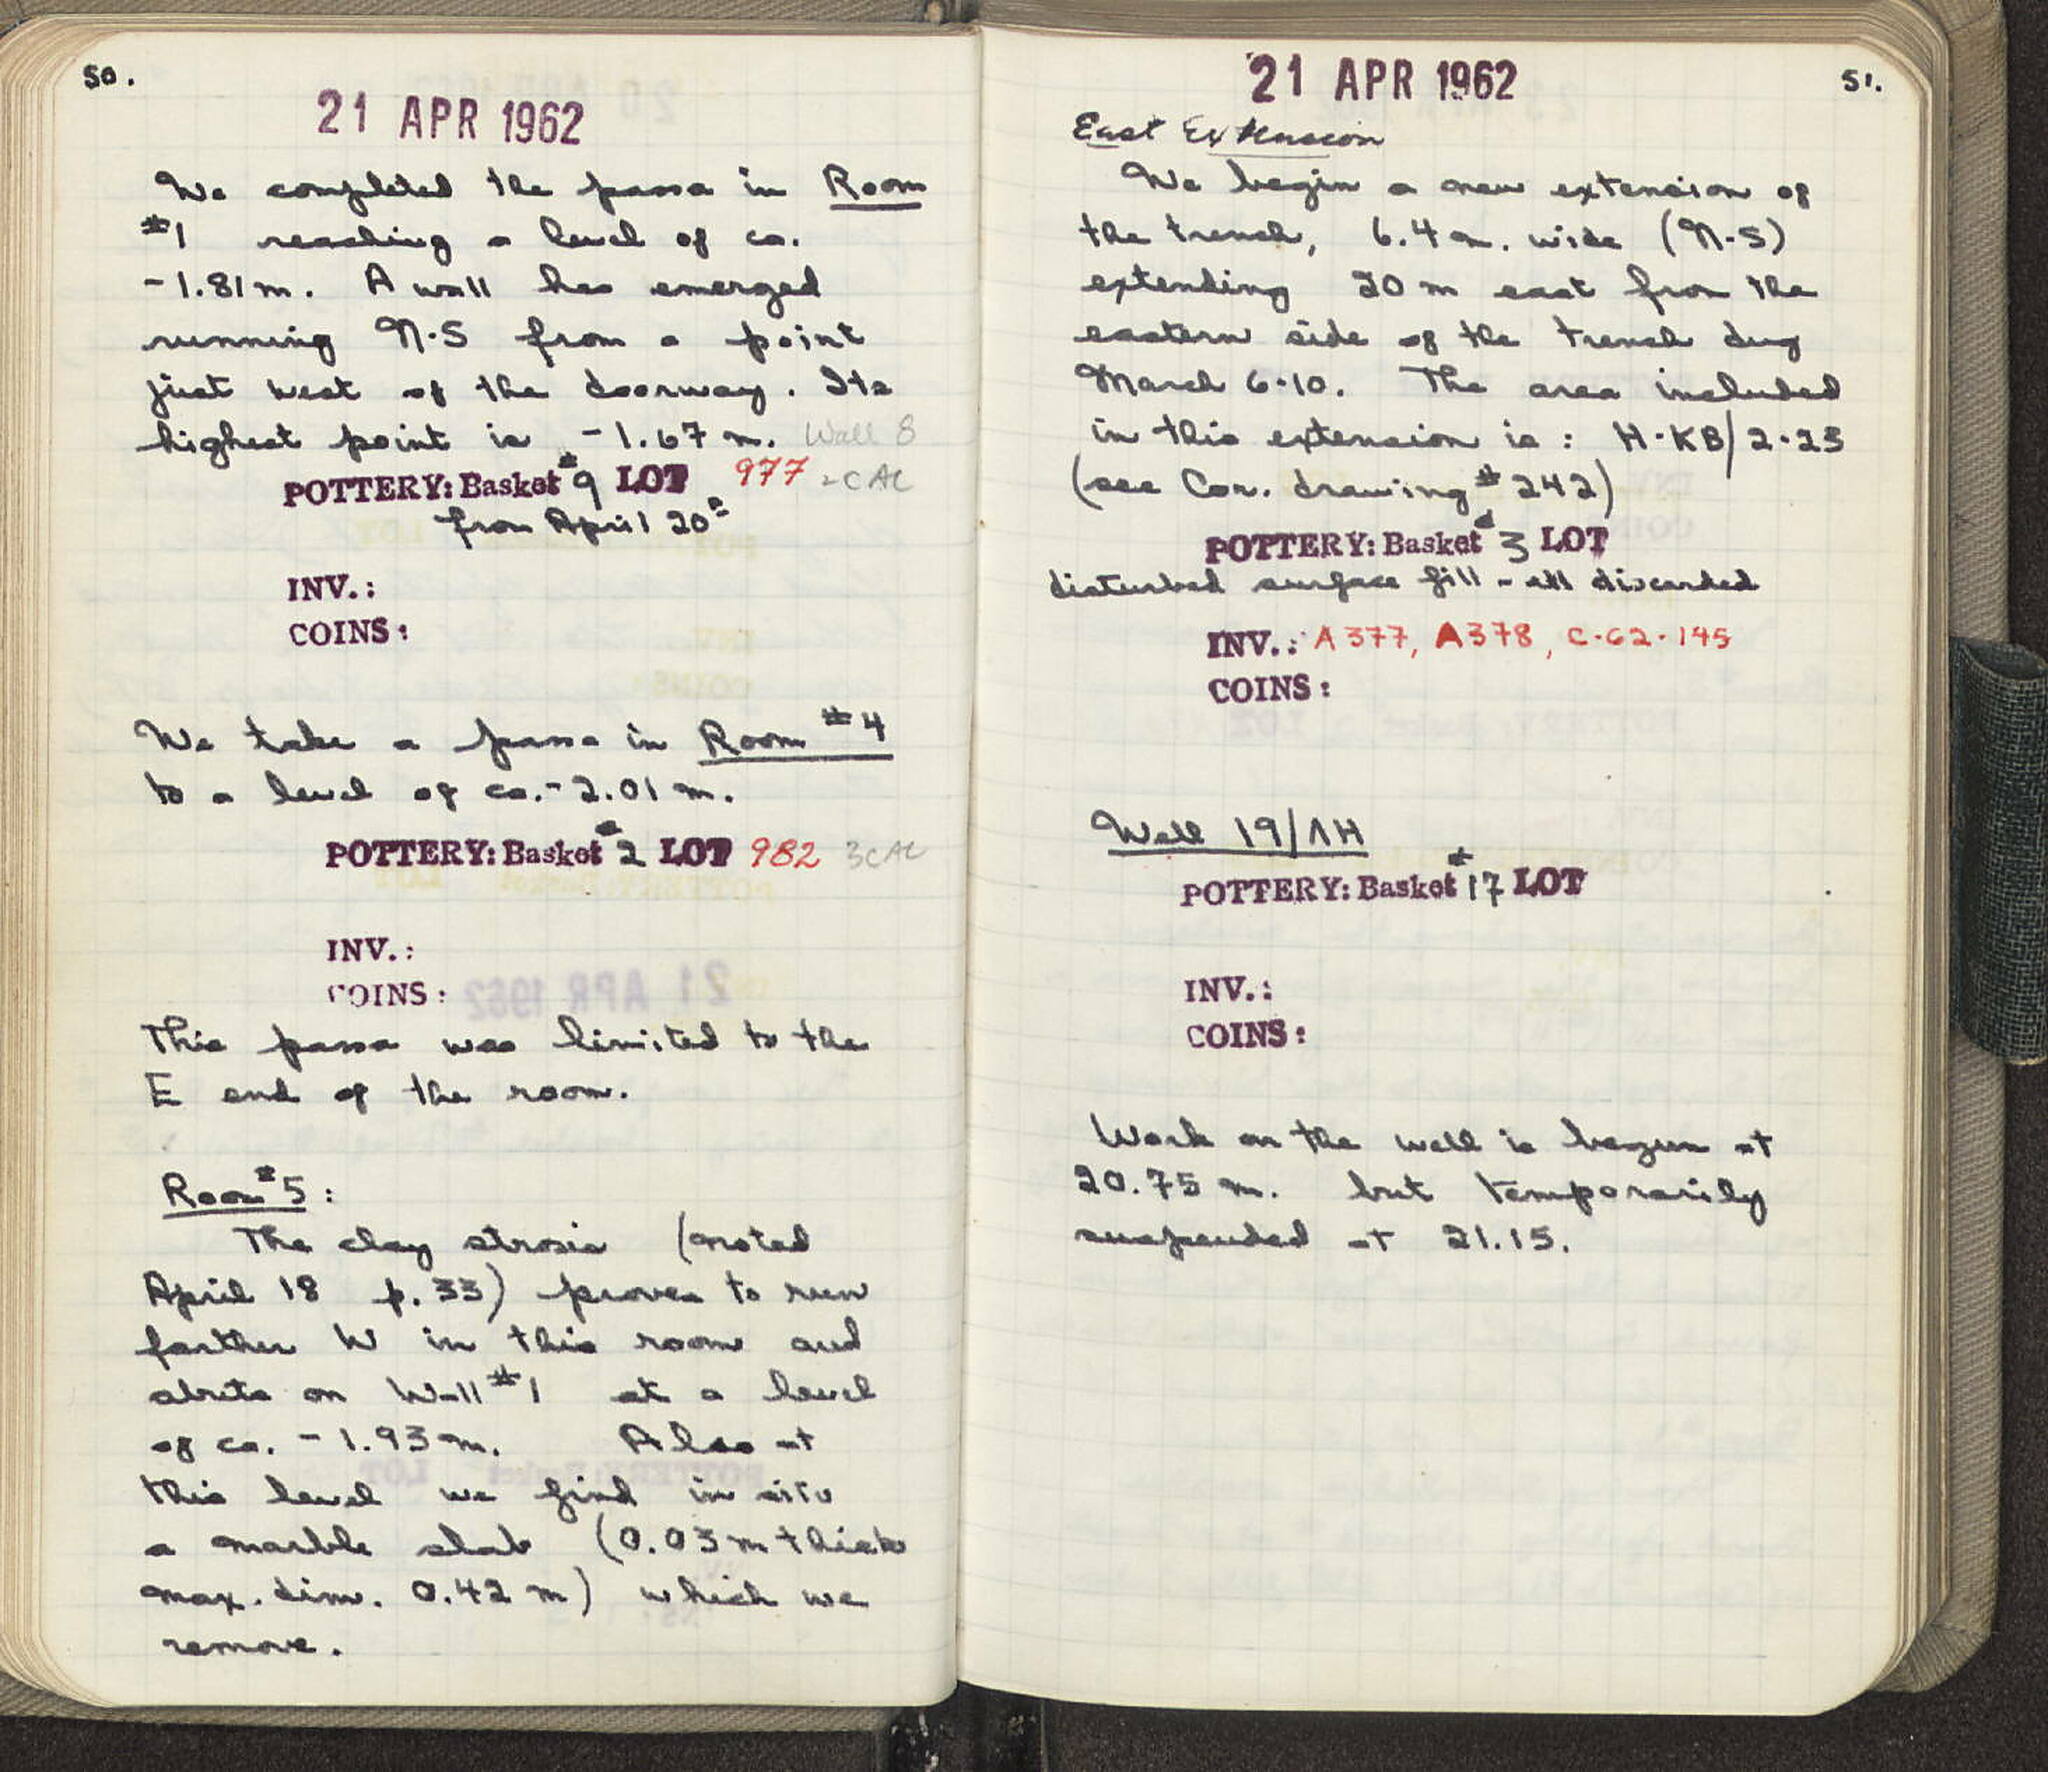 50.
21 APR 1962
We completed the passa in Room
#1 reaching a level of ca.
-1.81 m. A wall has emerged
running N-S from a point
just west of the doorway. Its
highest point is -1.67 m. Wall 8
POTTERY: Basket #9 LOT 977
from April 20
INV.:
COINS:
We take a passa in Room #4
to a level of ca. -2.01 m.
POTTERY: Basket #2 LOT 982
INV.:
COINS:
This passa was limited to the
E end of the room.
Room #5:
The clay strosis (noted
April 18 p. 33) proves to run
farther W in this room and
abuts on Wall #1 at a level
of ca. -1.93 m. Also at
this level we find in situ
a marble slab (0.03 m thick
max. dim. 0.42 m) which we
remove.
51.
21 APR 1962
East Extension
We begin a new extension of
the trench, 6.4 m. wide (N-S)
extending 20 m east from the
eastern side of the trench dug
March 6-10. The area included
in this extension is: H-KB/2-25
(see Cor. drawing #242)
POTTERY: Basket # 3 LOT
disturbed surface fill - all discarded
INV.: A377, A378, C-62-145
COINS:
Well 19/ΛH
POTTERY: Basket #17 LOT
INV.:
COINS:
Work on the well is begun at
20.75 m. but temporarily
suspended at 21.15.